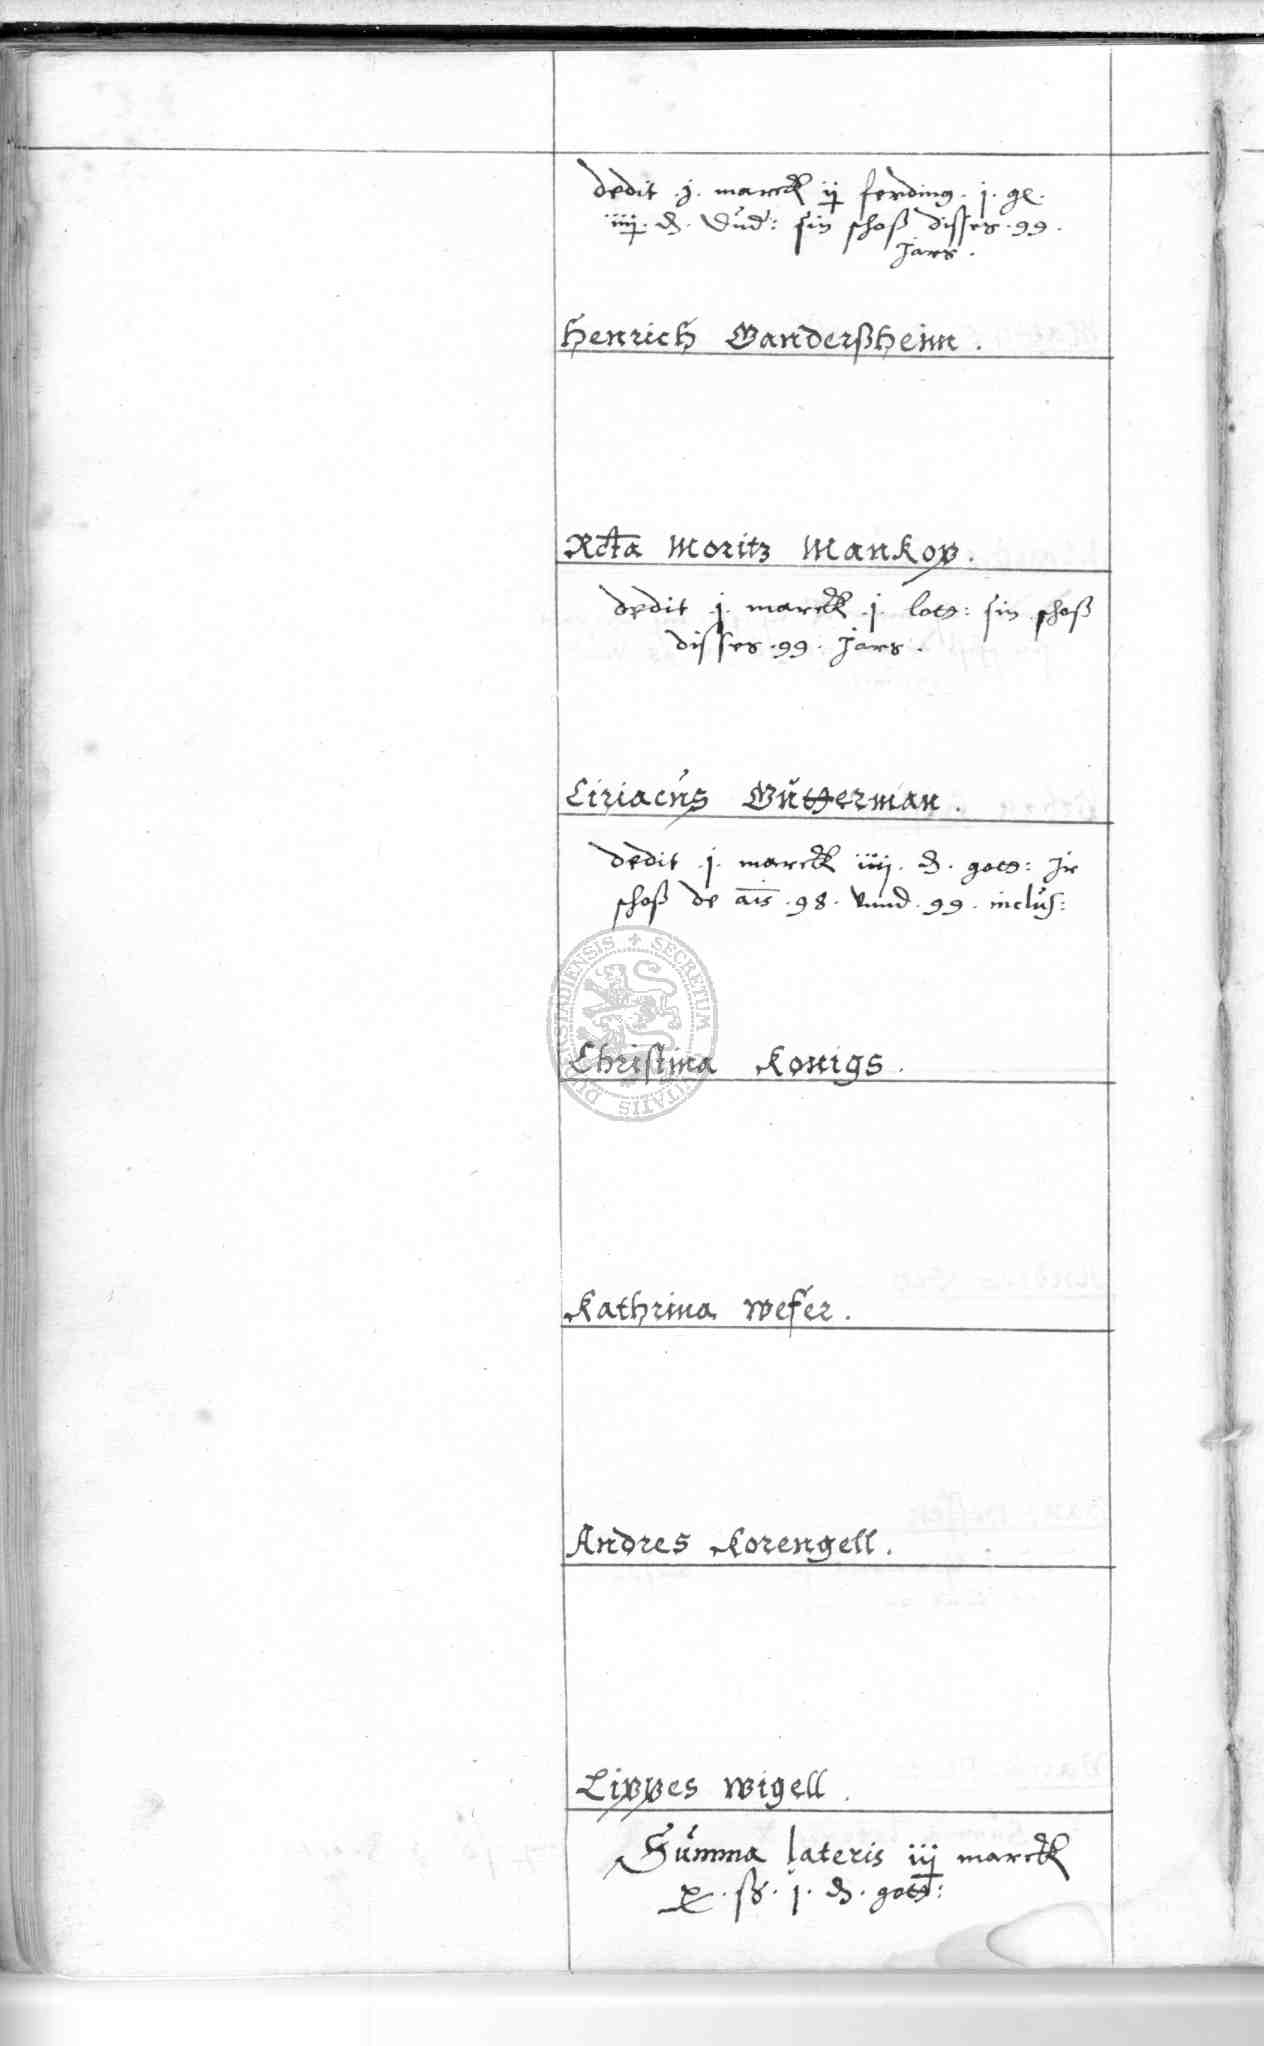 dedit .j. marck ij ferding. j. gl.
iiij. d. Dud: sin schoß disses .99.
Jars.
Henrich Ganderßheim.
Relicta Moritz Mankop.
dedit .j. marck .j. lots: sin schoß
disses .99. Jars.
Ciriacus Gutterman.
dedit .j. marck iiij. d. gots: Jr
schoß de ais .98. vnnd .99. inclus:
Christina Konigs.
Kathrina Wefer.
Andres Korengell.
Lippes Wigell.
Summa lateris iij marck
x. ß. j. d. gots:
SECRETUM CIVITATIS DUDERSTADIENSIS